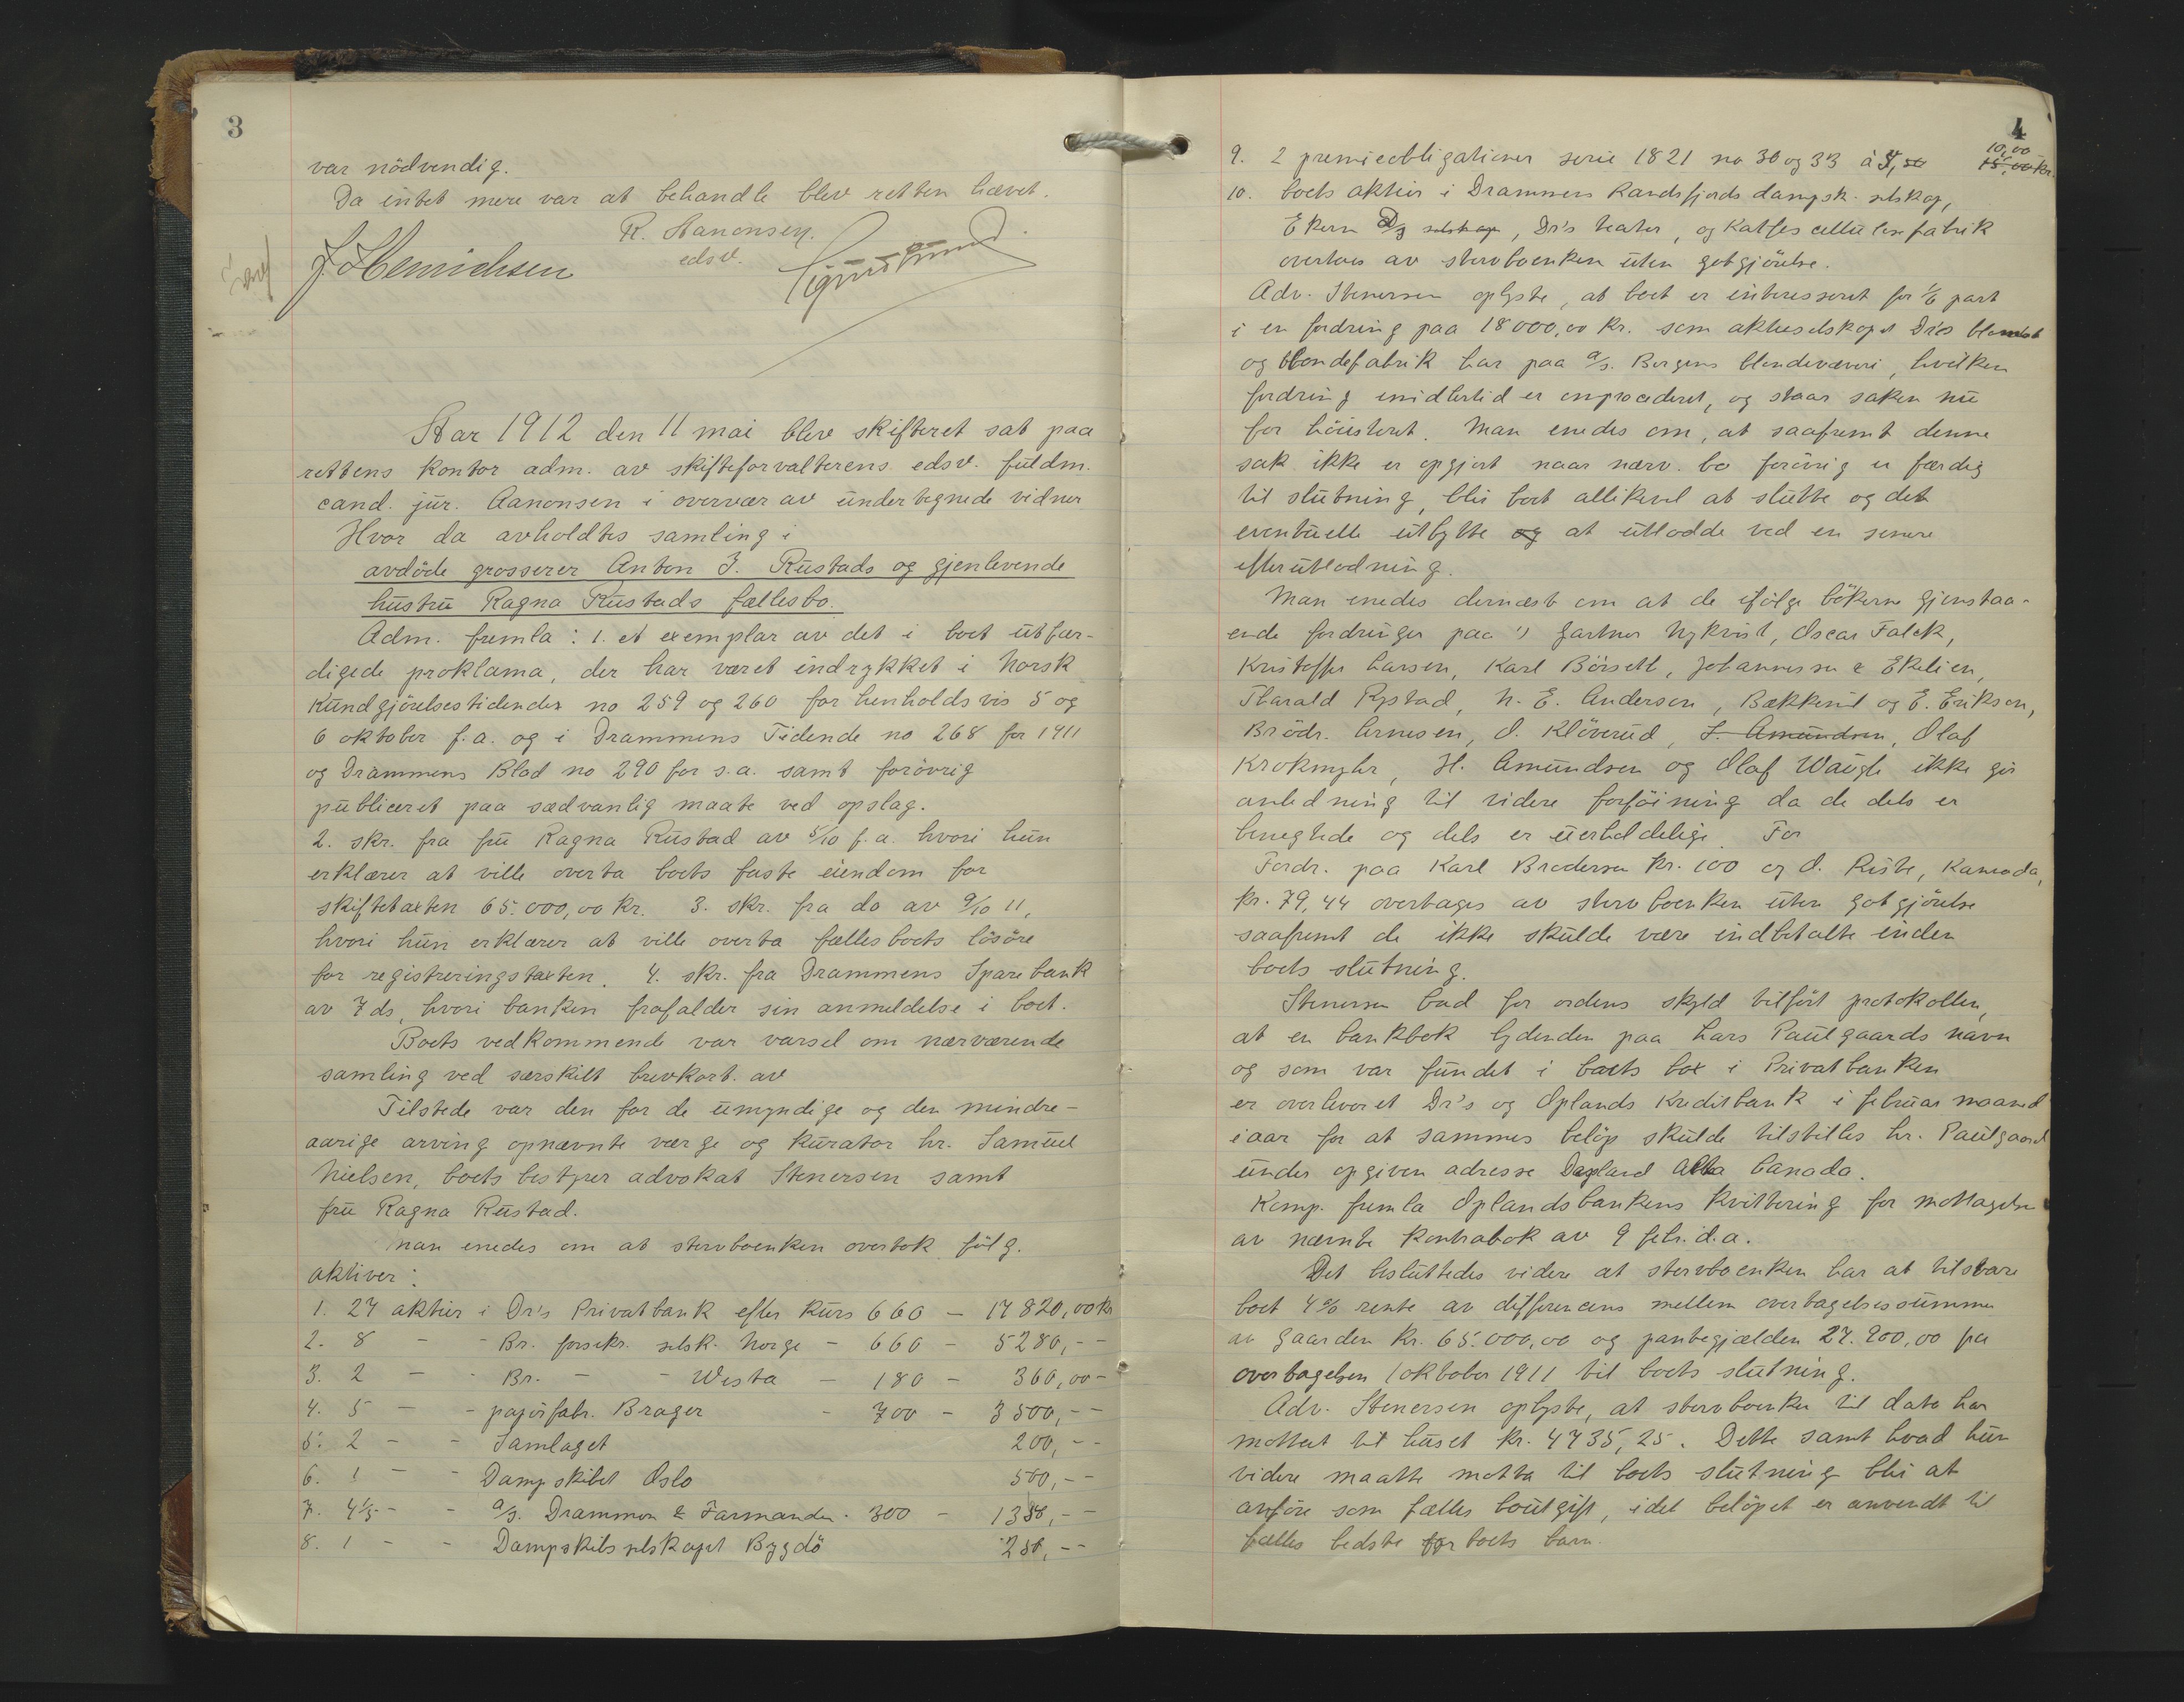 3
var nödvendig.
Da intet mere var at behandle blev retten hævet.
R. Aanonsen.
edsv.
J. Henrichsen
Aar 1912 den 11 mai blev skifteret sat paa
rettens kontor adm. av skifteforvalterens edsv. fuldm.
cand. jur. Aanonsen i overvær av undertegnede vidner
Hvor da avholdtes samling i
avdöde grosserer Anton J. Rustads og gjenlevende
hustru Ragna Rustads fællesbo.
Adm. fremla: 1. et exemplar av det i boet utfær-
digede proklama, der har været indrykket i Norsk
Kundgjörelsestidender no 259 og 260 for henholdsvis 5 og
6 oktober f.a. og i Drammens Tidende no 268 for 1911
og Drammens Blad no 290 for s.a. samt forövrig
publiceret paa sædvanlig maate ved opslag.
2. skr. fra fru Ragna Rustad av 5/10 f.a. hvori hun
erklærer at ville overta boets faste eiendom for
skiftetaxten 65.000,00 kr. 3. skr. fra do av 9/10 11,
hvori hun erklærer at ville overta fællesboets lösöre
for registreringstaxten. 4. skr. fra Drammens Sparebank
av 7 ds, hvori banken frafalder sin anmeldelse i boet.
Boets vedkommende var varsel om nærværende
samling ved særskilt brevkort. av
Tilstede var den for de umyndige og den mindre-
aarige arving opnævnte værge og kurator hr. Samuel
Nielsen, boets bestyrer advokat Stenersen samt
fru Ragna Rustad.
Man enedes om at stervboenken overtok fölg.
aktiver:
1. 27 aktier i Dr's Privatbank efter kurs 660 - 17820,00 kr
2. 8 - - Br. forsikr. selsk. Norge - 660 - 5280,--
3. 2 - - Br. - - Vesta - 180 - 360,00-
4. 5 - - papirfabr. Brager - 700 - 3500,--
5. 2 - - Samlaget 200,--
6. 1 - - Dampskibet Oslo 500,--
7. 4 1/5 - - a/s. Drammen & Farmanden. 300 - 1350,--
8. 1 - - Dampskibsselskapet Bygdö 250,--
4
9. 2 premieobligationer serie 1821 no 30 og 33 à 5,00 10,00 15,00 kr.
10. boets aktier i Drammens Randsfjords dampsk. selskap,
Ekern D/s selskap, Dr's teater, og Katfos cellulosefabrik
overtaes av stervboenken uten godtgjörelse.
Adv. Stenersen oplyste, at boet er interesseret for 1/6 part
i en fordring paa 18000,00 kr. som aktieselskapet Dr's
og blondefabrik har paa a/s. Bergens blondeveveri, hvilken
fordring imidlertid er omprocederet, og staar saken nu
for höiesteret. Man enedes om, at saafremt denne
sak ikke er opgjort naar nærv. bo forövrig er færdig
til slutning, blir boet allikevel at slutte og det
eventuelle utbytte og at utlodde ved en senere
efterutlodning.
Man enedes dernæst om at de ifölge bökerne gjenstaa-
ende fordringer paa 1) gartner Nykvist, Oscar Falck,
Kristoffer Larsen, Karl Börseth, Johannessen & Ekelien,
Harald Rystad, N. E. Andersen, Bækkevil og E. Eriksen,
Brödr. Arnesen, O. Klöverud, S. Amundsen, Olaf
Krokmyhr, H. Amundsen og Olaf Waugle ikke gir
anledning til videre forföining da de dels er
benegtede og dels er uerholdelige. For
Fordr. paa Karl Brodersen kr. 100 og O. Ruste, Kanada,
kr. 79,44 overtages av stervboenken uten godtgjörelse
saafremt de ikke skulde være indbetalte inden
boets slutning.
Stenersen bad for ordens skyld tilfört protokollen,
at en bankbok lydenden paa Lars Paulgaards navn
og som var fundet i boets box i Privatbanken
er overleveret Dr's og Oplands Kreditbank i februar maaned
iaar for at sammes belöp skulde tilstilles hr. Paulgaard
under opgiven adresse Dayland Alta Canada.
Komp. fremla Oplandsbankens kvittering for mottagelsen
av nævnte kontrabok av 9 febr. d.a.
Det besluttedes videre at stervboenken har at tilsvare
boet 4% rente av differencens mellem overtagelsessummen
av gaarden kr. 65.000,00 og pantegjælden 27.200,00 fra
overtagelsen 1 oktober 1911 til boets slutning.
Adv. Stenersen oplyste, at stervboenken til dato har
mottat til huset kr. 4735,25. Dette samt hvad hun
videre maatte motta til boets slutning blir at
anföre som fælles boutgift, idet belöpet er anvendt til
fælles bedste for boets barn.